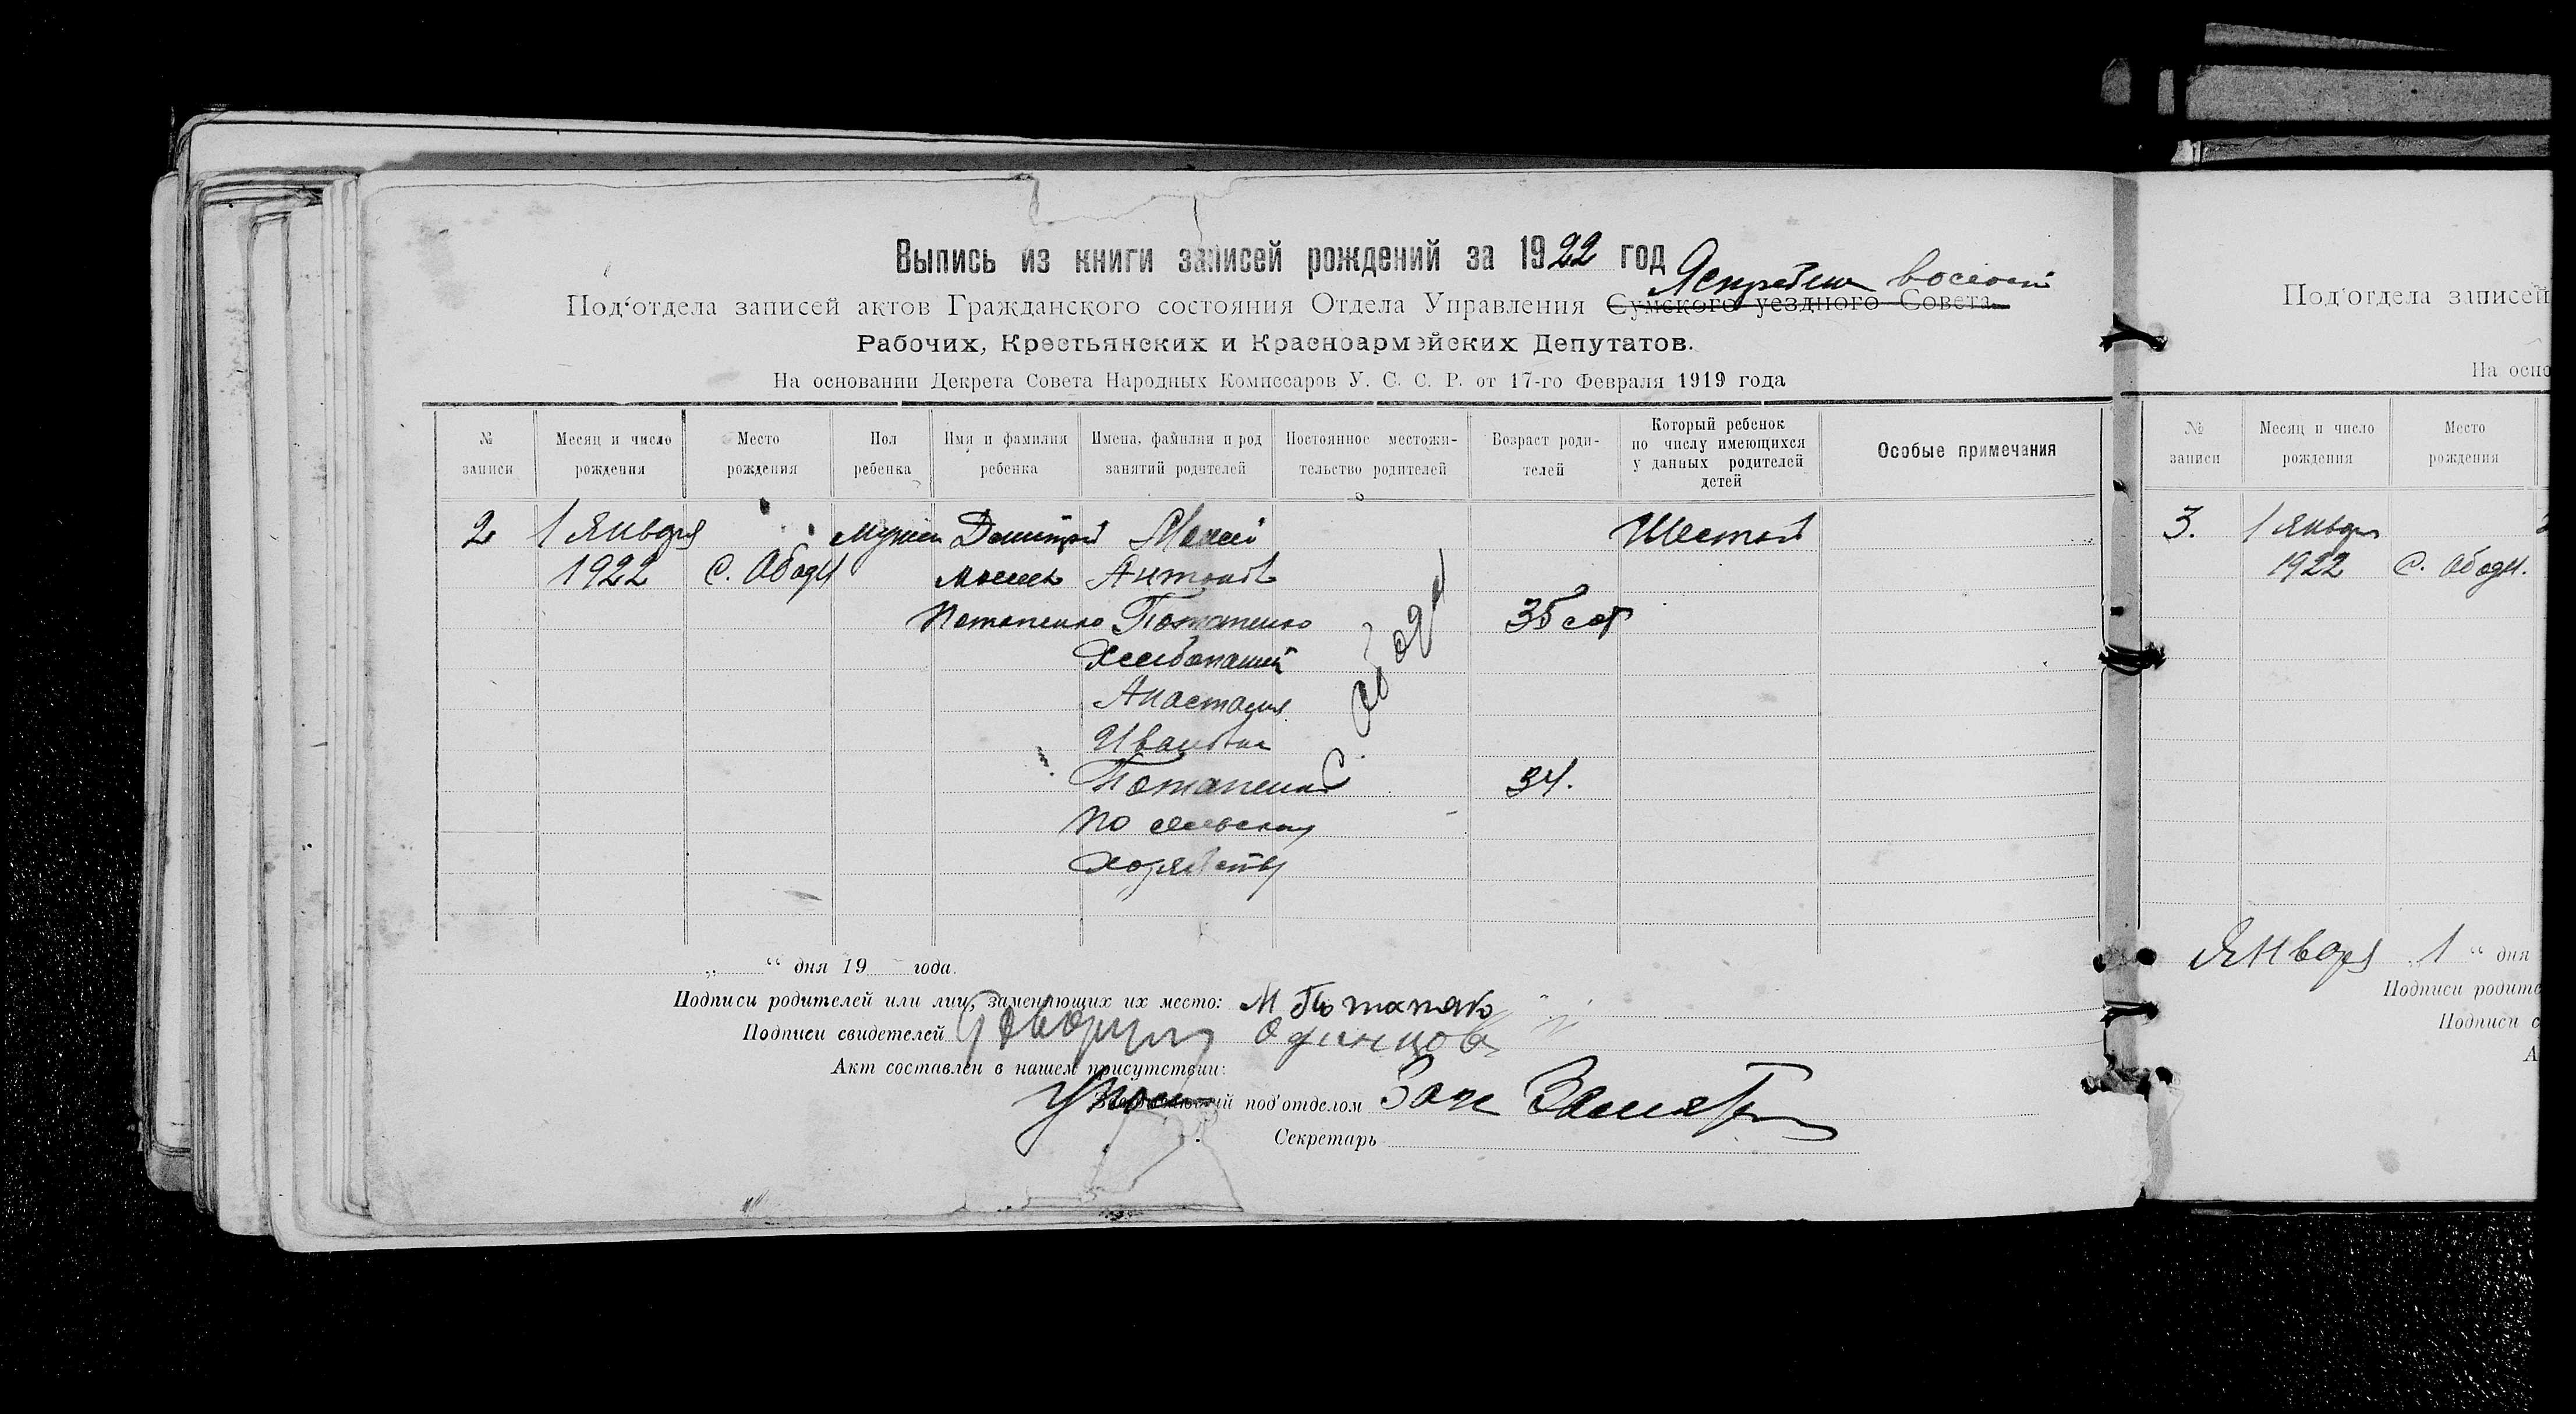 Выпись из книги записей рождений за 1922 год
Под‘отдела записей актов Гражданского состояния Отдела Управления Сумского уездного Совета
Рабочих, Крестьянских и Красноармейских Депутатов.
На основании Декрета Совета Народных Комиссаров У. С. С. Р. от 17-го Февраля 1919 года
№ записи
Месяц и число рождения
Место рождения
Пол ребенка
Имя и фамилия ребенка
Имена, фамилии и род занятий родителей
Постоянное местожительство родителей
Возраст родителей
Который ребенок по числу имеющихся у данных родителей детей
Особые примечания
2
1 Января
1922
с. Ободы
Мужск
Дмитрий
Потапенко
Антонов
Потапенко
Хлебопашец
Анастасия
Ивановна
Потапенко
по сельскому
хозяйству
с. Ободы
35 лет
34.
Шестой
„ “ дня 19 года.
Подписи родителей или лиц, заменяющих их место: М Потапенко
Подписи свидетелей Говорун Одинцов
Акт составлен в нашем присутствии:
под‘отделом
Секретарь
Под‘отдела записей
На осно
№ записи
Месяц и число рождения
Место рождения
3.
1 Января
1922
с. Ободы.
Января „1“ дня
Подписи родите
Подписи с
А